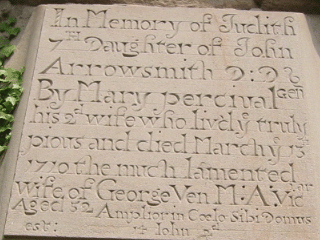 In Memory of Judith
7th Daughter of John
Arrowsmith D:D &
By Mary percival Gen
his 2d wife who liv'd yt truly
pious and died March ye 15th
1710 the much lamented
wife of George Ven M:A Vicar
Aged 52 Amplior in Coelo Sibi Domus
est: 4 Iohn 2st